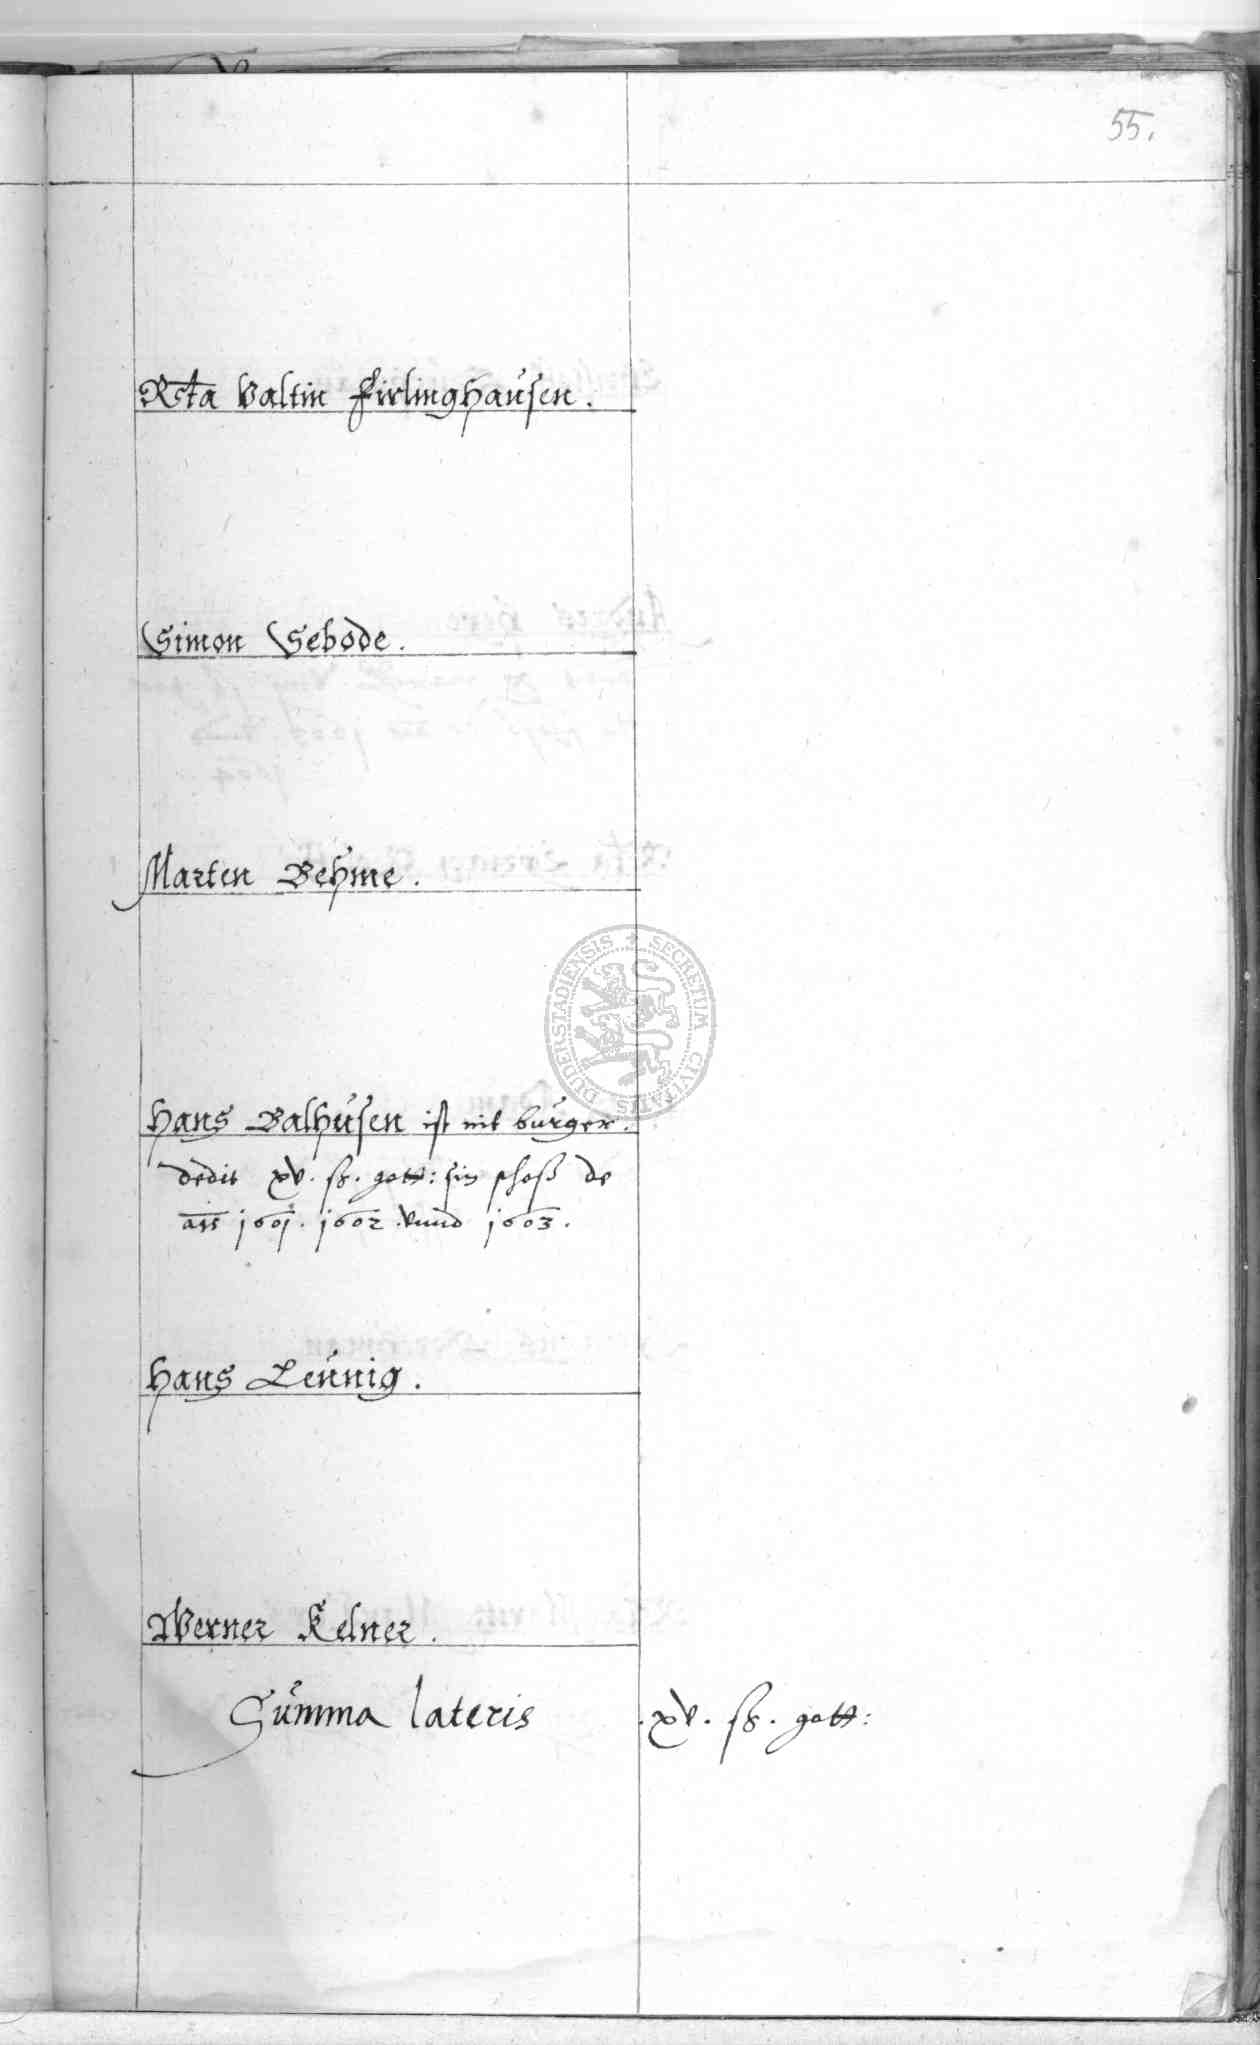 55.
Rcta Valtin Firlinghausen.
Simon Sebode.
Marten Behme.
SECRETUM CIVITATIS DUDERSTADIENSIS
Hans Balhusen ist nit burger.
dedit xv. ß. gott: sin schoß de
ais 1601. 1602. vnnd 1603.
Hans Leunig.
Werner Kelner.
Summa lateris .xv. ß. gott: